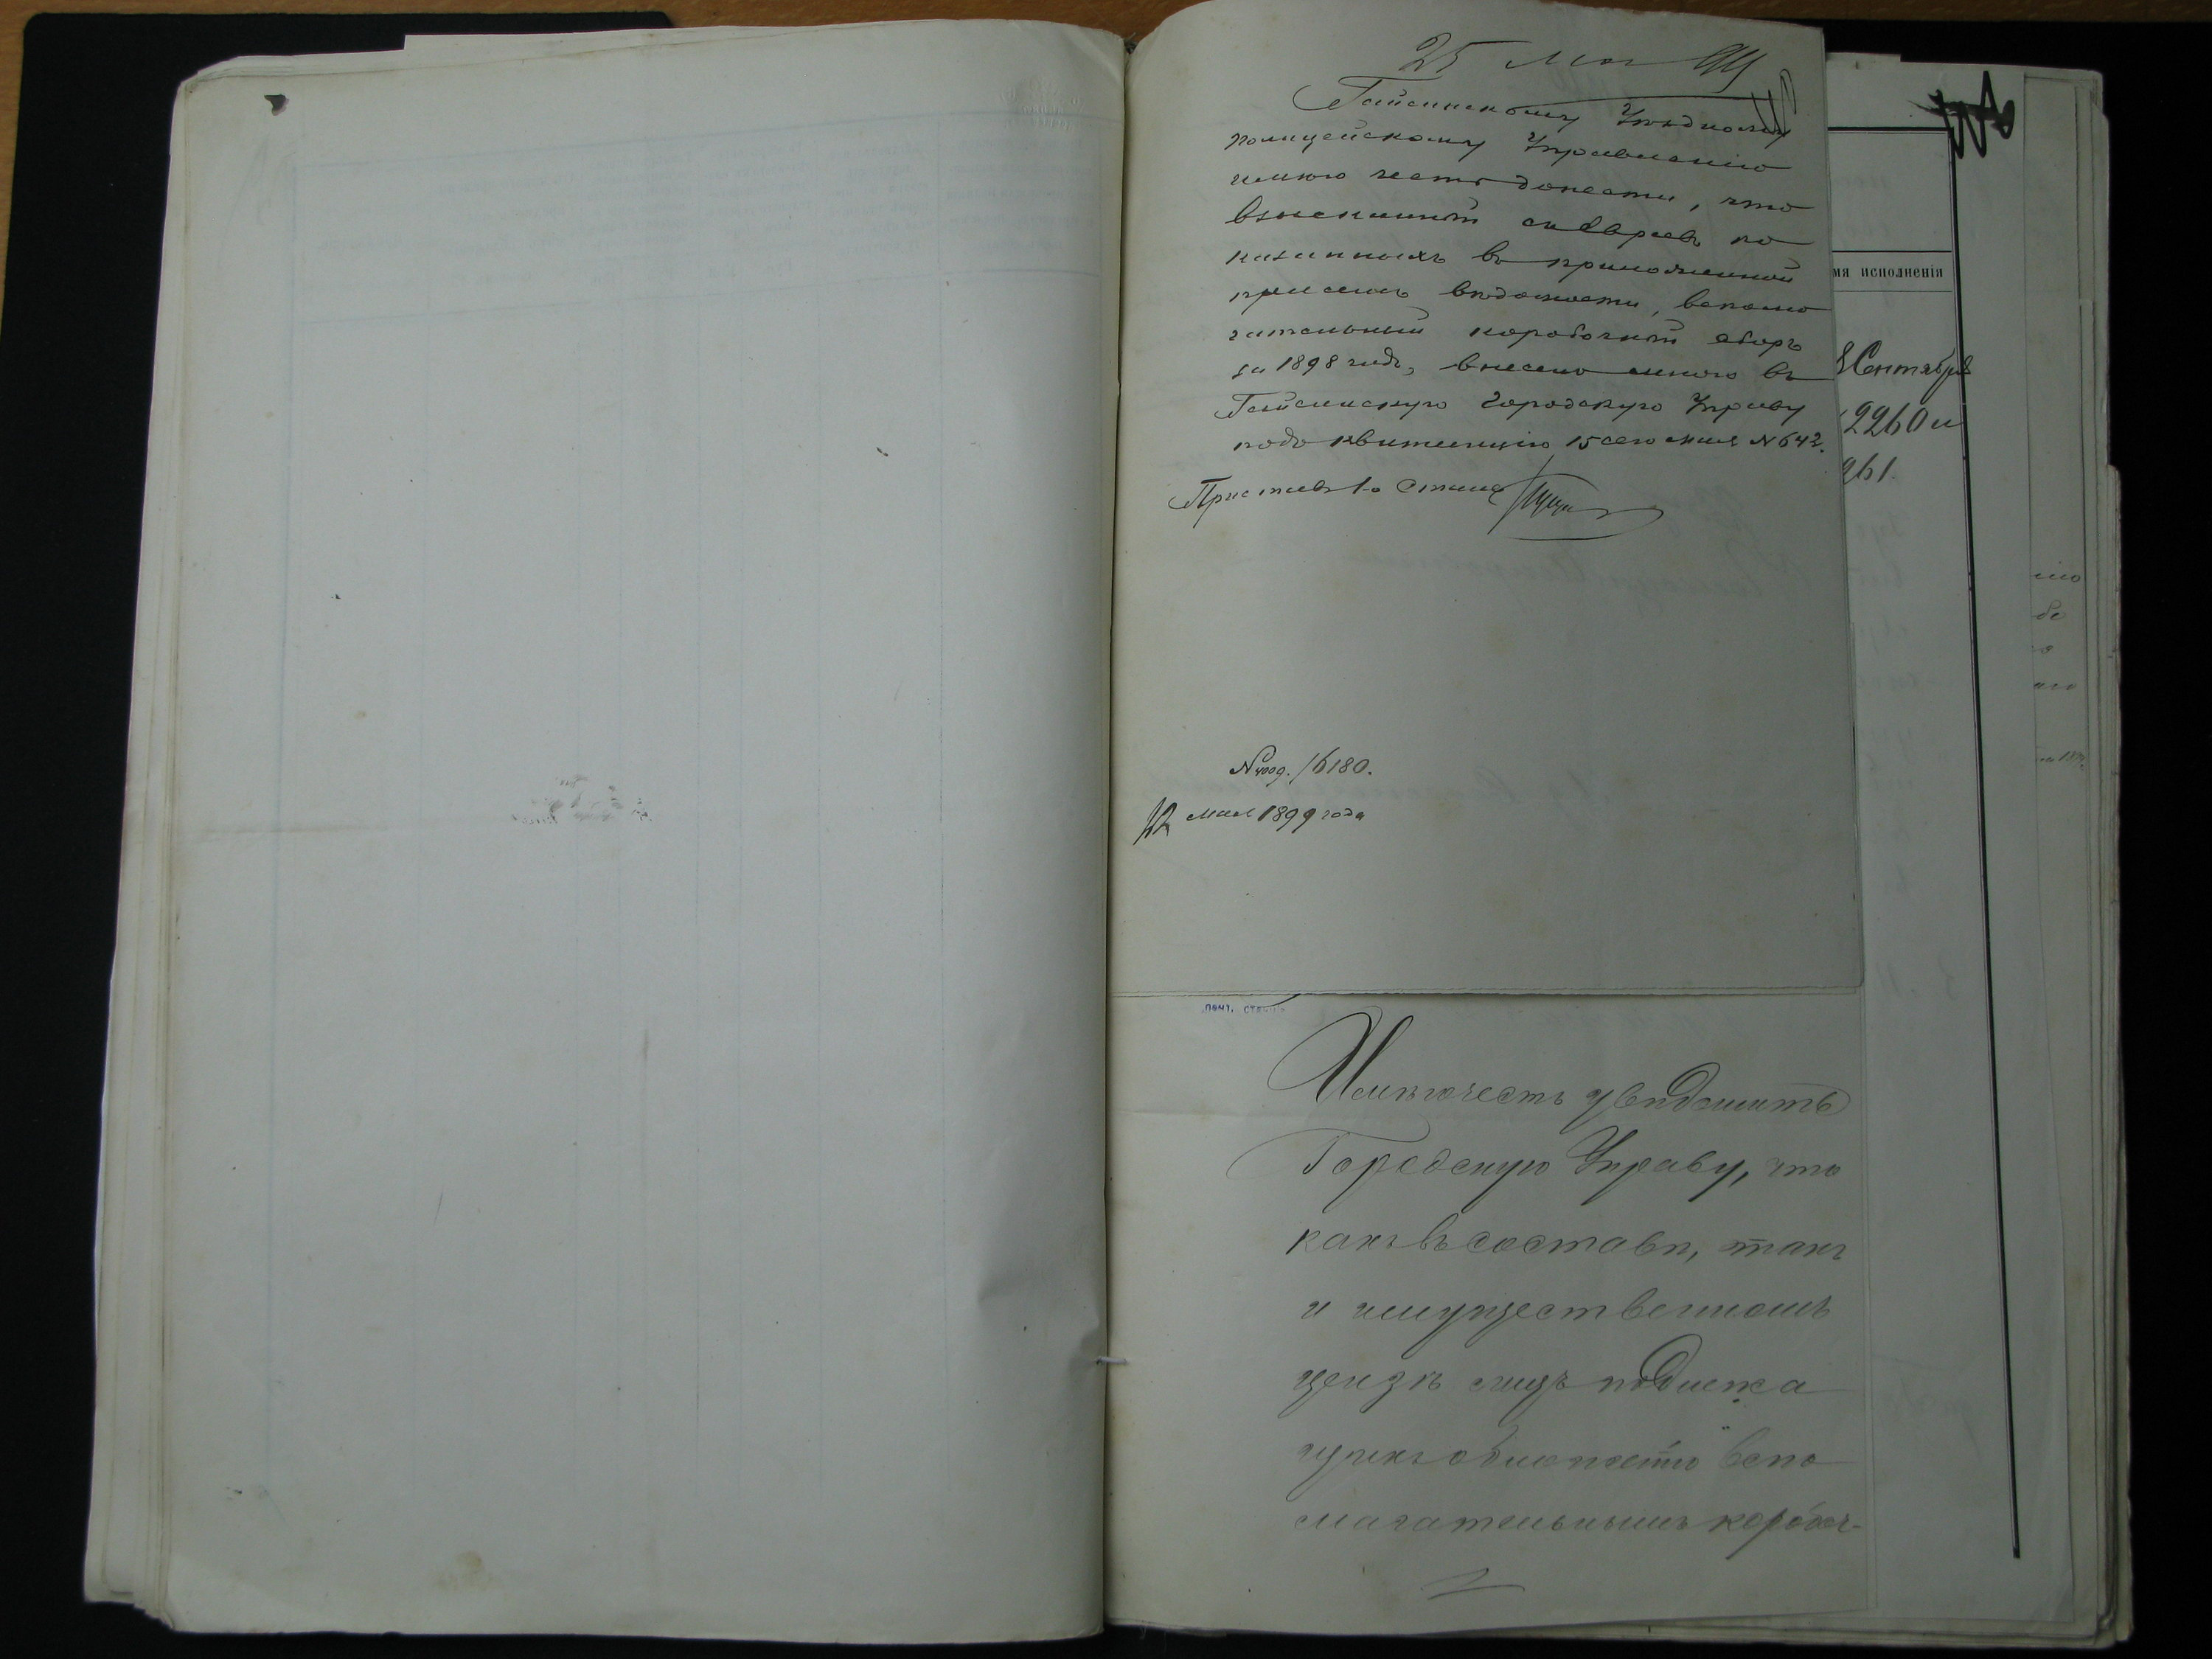 25 мая 99
Гайсинскому Уѣздному
полицейскому Управленію
имѣю честь донести, что
взысканный съ евреевъ по
казанныхъ въ приложенной
при семъ вѣдомости, вспомо
гательный коробочный сборъ
за 1898 годъ, внесено мною въ
Гайсинскую Городскую Управу
подъ квитанцію 15 сего мая № 643.
Приставъ 1-о Стана
6180.
мая 1899 года
мя исполненія
Сентября
2260 и
261.
почт. станц
Имѣю честь увѣдомить
Городскую Управу, что
какъ въ составѣ, такъ
и имущественномъ
цензѣ лицъ подлежа
щихъ обложенію вспо
магательнымъ коробоч-